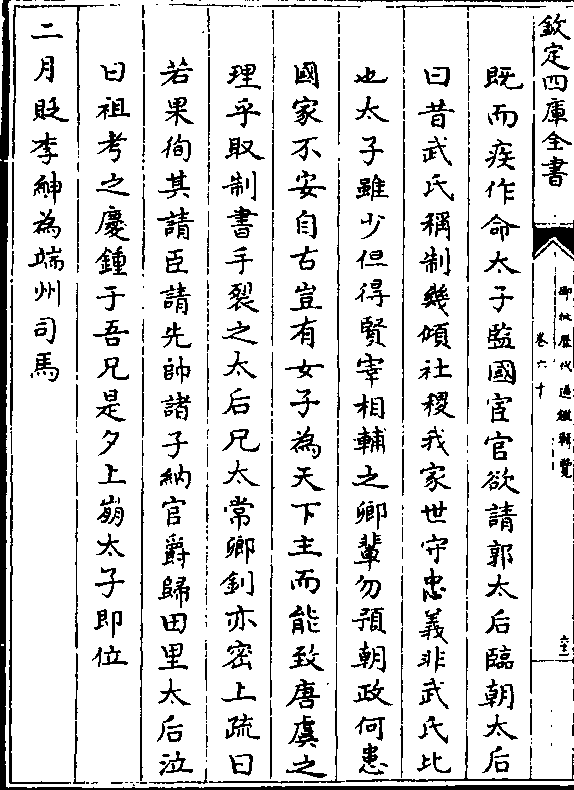 欽定四庫全書
御批歷代通鑑輯覽
卷六十
既而疾作命太子監國宦官欲請郭太后臨朝太后
曰昔武氏稱制幾傾社稷我家世守忠義非武氏比
也太子雖少但得賢宰相輔之卿輩勿預朝政何患
國家不安自古豈有女子為天下主而能致唐虞之
理乎取制書手裂之太后兄太常卿釗亦密上疏曰
若果徇其請臣請先帥諸子納官爵歸田里太后泣
曰祖考之慶鍾于吾兄是夕上崩太子即位
二月貶李紳為端州司馬